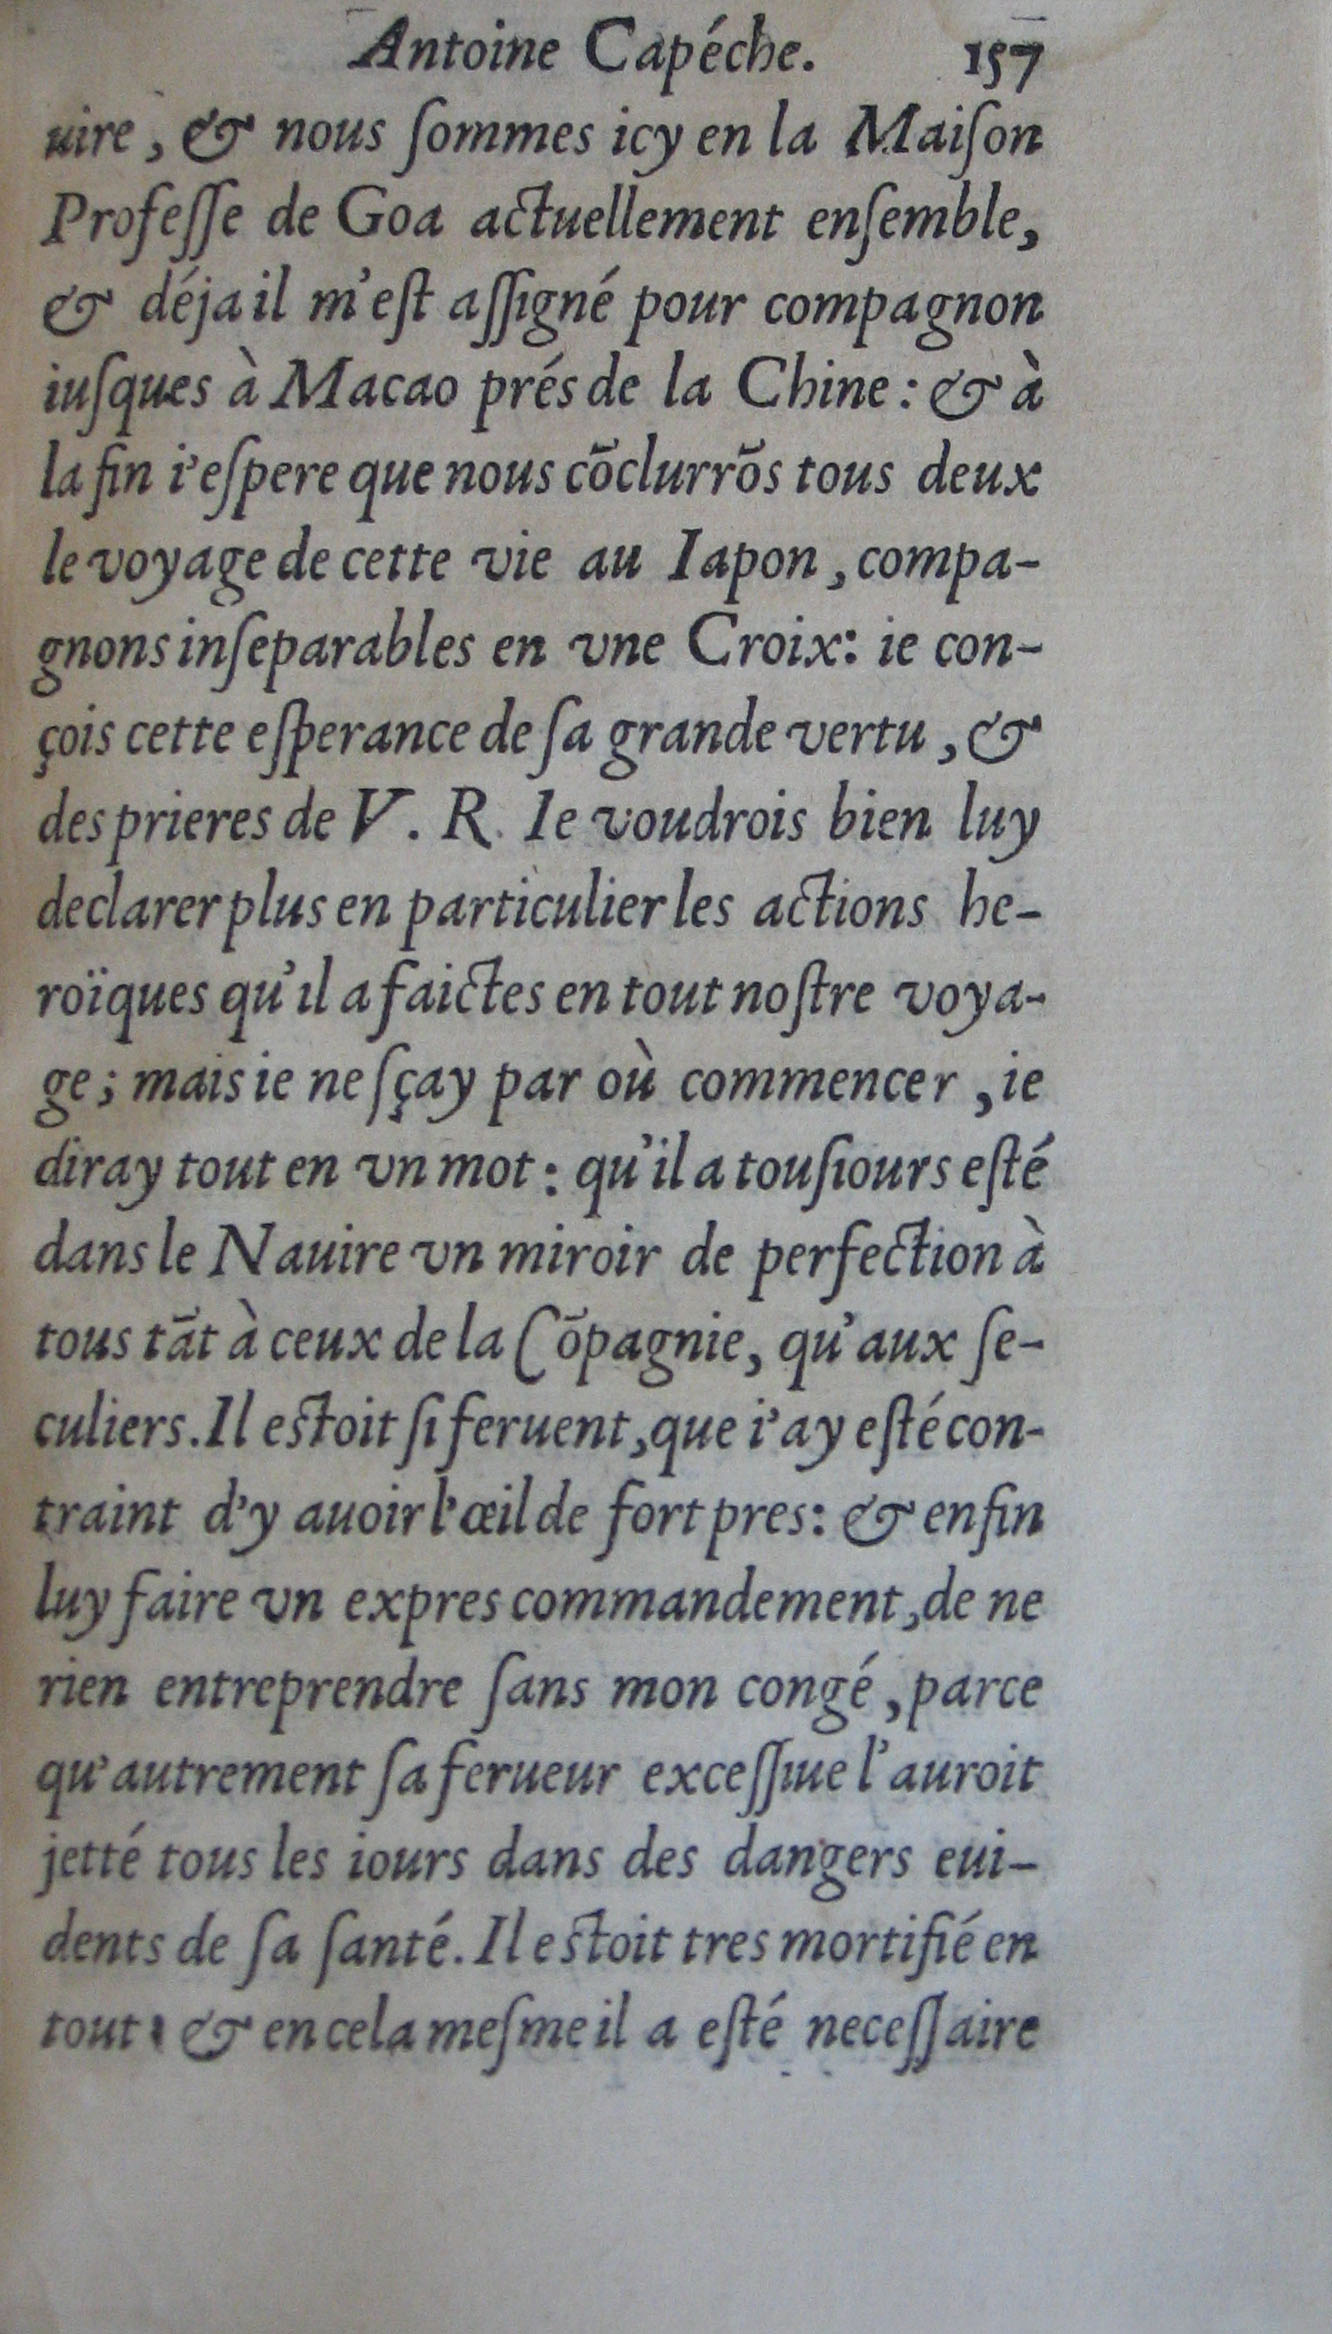 Antoine Capéche. 157
uire, & nous ſommes icy en la Maiſon
Profeſſe de Goa actuellement enſemble,
& déja il m'eſt aſſigné pour compagnon
iuſques à Macao prés de la Chine : & à
la fin i'eſpere que nous cōclurrōs tous deux
le voyage de cette vie au Iapon, compa-
gnons inſeparables en vne Croix: ie con-
çois cette eſperance de ſa grande vertu, &
des prieres de V. R. Ie voudrois bien luy
declarer plus en particulier les actions he-
roïques qu'il a faictes en tout noſtre voya-
ge; mais ie ne ſçay par où commencer, ie
diray tout en vn mot: qu'il a touſiours eſté
dans le Nauire vn miroir de perfection à
tous tāt à ceux de la Cōpagnie, qu'aux ſe-
culiers. Il eſtoit ſi feruent, que i'ay eſté con-
traint d'y auoir l'œil de fort pres: & enfin
luy faire vn expres commandement, de ne
rien entreprendre ſans mon congé, parce
qu'autrement ſa ferueur exceſſiue l'auroit
jetté tous les iours dans des dangers eui-
dents de ſa ſanté. Il eſtoit tres mortifié en
tout: & en cela meſme il a eſté neceſſaire